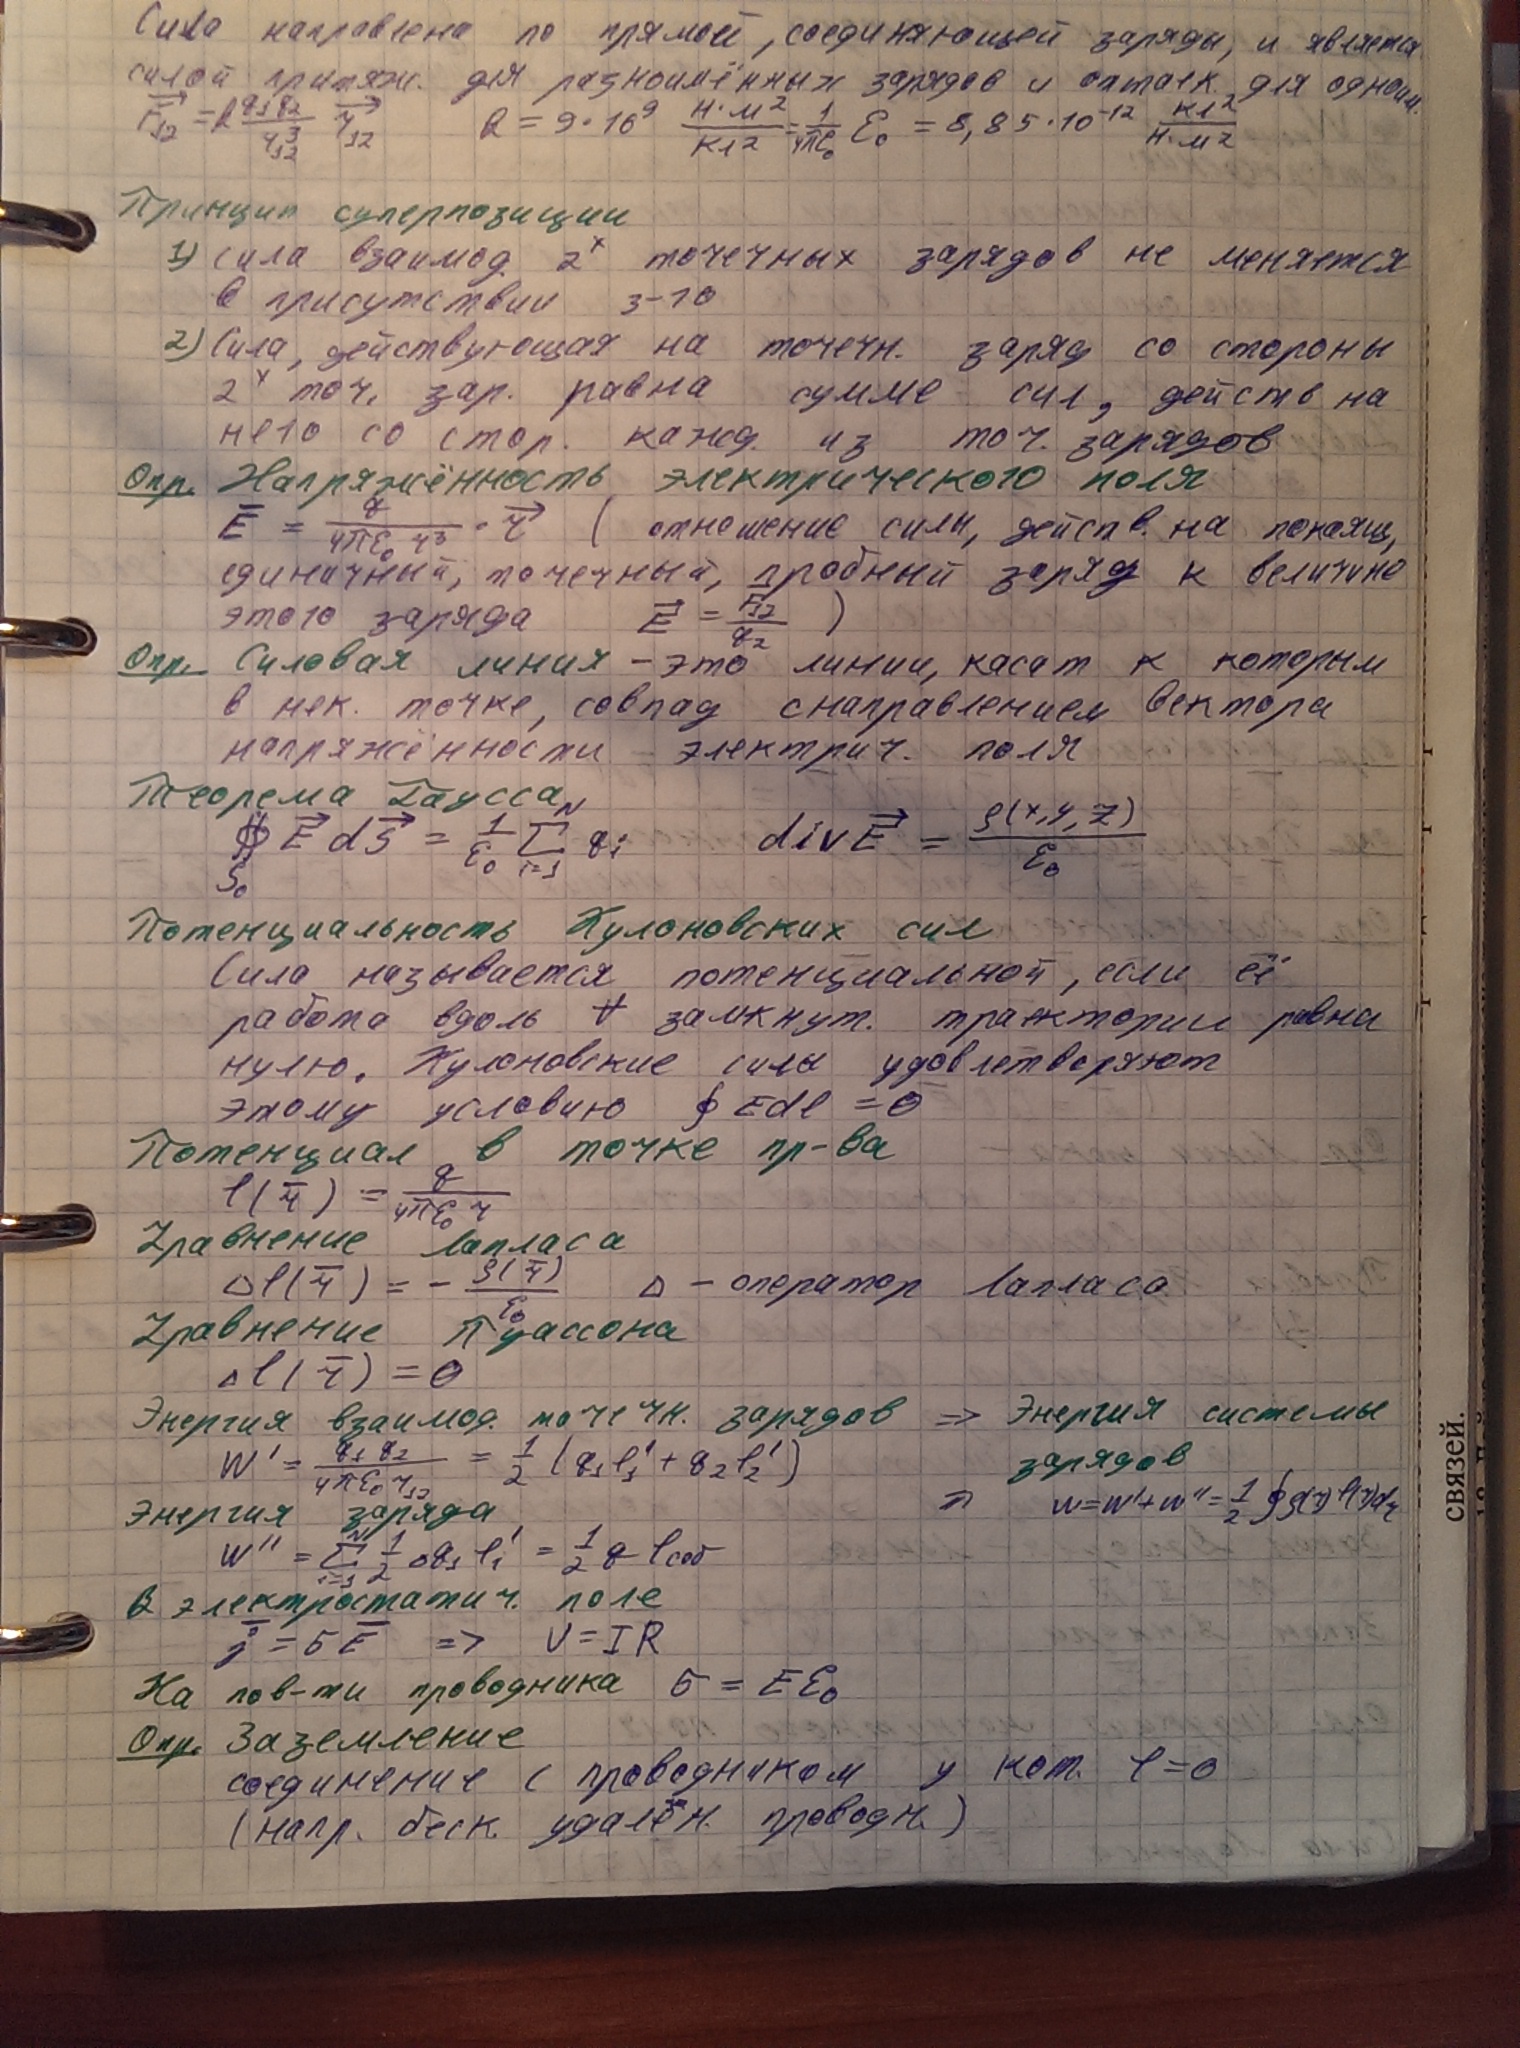 Сила направлена по прямой, соединяющей заряды, и является
силой притяж. для разноимённых зарядов и отталк. для одноим.
F₁₂ = k q₁q₂/r₁₂³ r₁₂ k = 9·10⁹ Н·м²/Кл² = 1/4πε₀ ε₀ = 8,85·10⁻¹² Кл²/Н·м²
Принцип суперпозиции
1) Сила взаимод. 2ˣ точечных зарядов не меняется
в присутствии 3-го
2) Сила, действующая на точечн. заряд со стороны
2ˣ точ. зар. равна сумме сил, действ на
него со стор. кажд. из точ. зарядов
Опр. Напряжённость электрического поля
E = q/4πε₀r³ · r ( отношение силы, действ. на покоящ,
единичный, точечный, пробный заряд к величине
этого заряда E = F₁₂/q₂ )
Опр. Силовая линия – это линии, касат к которым
в нек. точке, совпад с направлением вектора
напряжённости – электрич. поля
Теорема Гаусса
∯ E dS = 1/ε₀ Σ qᵢ div E = ρ(x,y,z)/ε₀
S₀ i=1 N
Потенциальность Кулоновских сил
Сила называется потенциальной, если её
работа вдоль ∀ замкнут. траектории равна
нулю. Кулоновские силы удовлетворяют
этому условию ∮ Edl = 0
Потенциал в точке пр-ва
φ(r) = q/4πε₀r
Уравнение Лапласа
Δφ(r) = - ρ(r)/ε₀ Δ – оператор Лапласа
Уравнение Пуассона
Δφ(r) = 0
Энергия взаимод. точечн. зарядов => Энергия системы
зарядов
W' = q₁q₂/4πε₀r₁₂ = 1/2 (q₁φ₁' + q₂φ₂')
W = W' + W'' = 1/2 ∮ρ(r)φ(r)dr
Энергия заряда
W'' = Σ 1/2 Δqᵢ φᵢ' = 1/2 q φсоб
В электростатич. поле
j = σE => U = IR
На пов-ти проводника σ = Eε₀
Опр. Заземление
соединение с проводником у кот. φ=0
(напр. беск. удалён. проводн.)
связей.